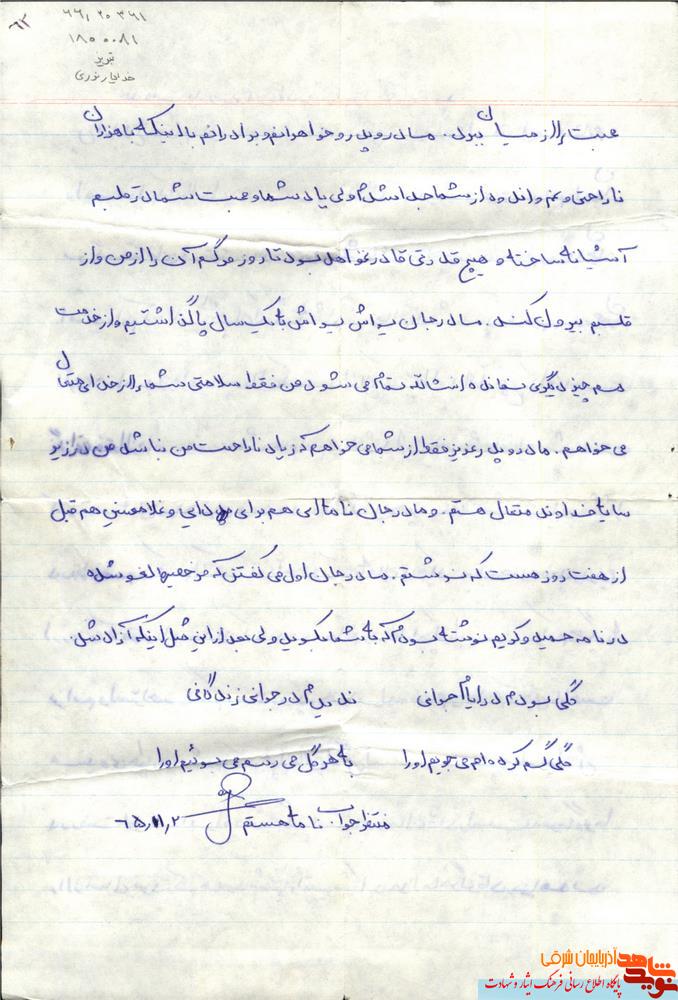 ۶۳
۶۶,۲۰۳۶۱
۱۸۵۰۰۸۱
تبریز
خدایار نوری
محبت را از میان ببرد. مادر و پدر و خواهرانم و برادرانم با اینکه با هزاران
ناراحتی و غم و اندوه از شما جدا شدم ولی یاد شما و محبت شما در قلبم
آشیانه ساخته و هیچ قدرتی قادر نخواهد بود تا روز مرگم آن را از من و از
قلبم بیرون کند. مادر جان یواش یواش با یک سال پا گذاشتیم و از خدمت
هم چیز دیگری نمانده انشاالله تمام می شود من فقط سلامتی شما را از خدای متعال
می خواهم. مادر و پدر عزیز فقط از شما می خواهم که زیاد ناراحت من نباشد من در زیر
سایه خداوند متعال هستم. و مادر جان نامه ای هم برای دایی و غلامحسین هم قبل
از هفت روز هست که نوشتم. مادر جان اول می گفتن که مرخصیها لغو شده
در نامه حمید و کریم نوشته بودم که به شما بگوید ولی بعد از این مثل اینکه آزاد شد.
گلی بودم در ایام جوانی ندیدم در جوانی زندگانی
گلی گم کرده ام می جویم او را به هر گل می رسم می بوئیم او را
منتظر جواب نامه هستم ۶۵,۱۱,۲
نوید شاهد آذربایجان شرقی
پایگاه اطلاع رسانی فرهنگ ایثار و شهادت